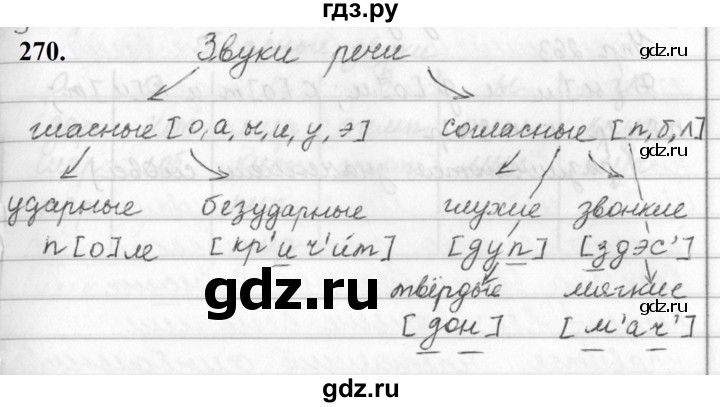 гдз.ру
270. Звуки речи
gdz.ru
гласные [о, а, ы, и, у, э] согласные [п, б, л]
ударные безударные глухие звонкие
п[о]ле [кр'ич'и́т] [дуп] [здэс']
gdz.ru
твёрдые мягкие
gdz.ru
[дон] [м'ач']
gdz.ru